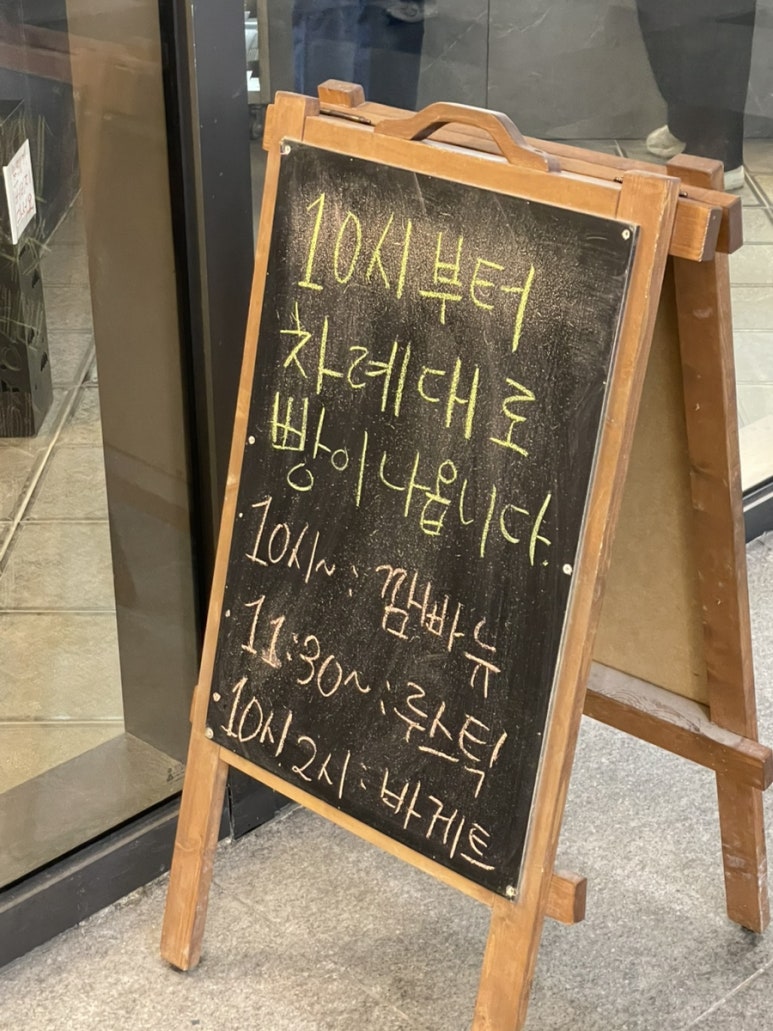 10시부터
차례대로
빵이나옵니다.
· 10시~ : 깜빠뉴
· 11:30~ : 루스틱
· 10시 2시 : 바게트